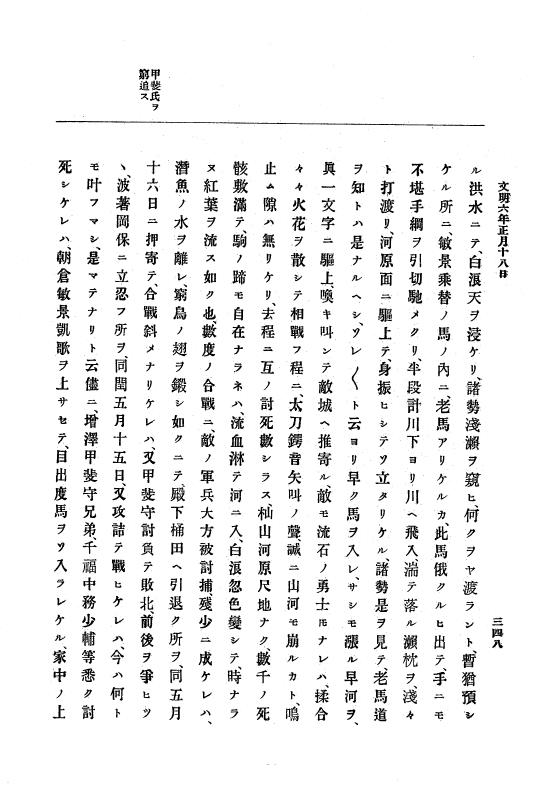 文明六年正月十八日
三四八
ル洪水ニテ、白浪天ヲ浸ケリ、諸勢淺瀨ヲ窺ヒ、何クヲヤ渡ラント、暫猶預シ
ケル所ニ、敏景乘替ノ馬ノ內ニ、老馬アリケルカ、此馬俄クルヒ出テ、手ニモ
不堪手綱ヲ引切馳メクリ、半段計川下ヨリ川ヘ飛入、湍テ落ル瀨枕ヲ、淺々
ト打渡リ、河原面ニ驅上テ、身振ヒシテソ立タリケル、諸勢是ヲ見テ、老馬道
ヲ知トハ是ナルヘシ、ソレ〱ト云ヨリ早ク馬ヲ入レ、サシモ漲ル早河ヲ、
眞一文字ニ驅上、喚キ叫ンテ敵城ヘ推寄ル、敵モ流石ノ勇士𪜈ナレハ、揉合
々々火花ヲ散シテ相戰フ程ニ、太刀鍔音矢叫ノ聲、誠ニ山河モ崩ルカト、鳴
止ム隙ハ無リケリ、去程ニ互ノ討死數シラス、杣山河原尺地ナク、數千ノ死
骸敷滿テ、駒ノ蹄モ自在ナラネハ、流血淋テ河ニ入、白浪忽色變シテ、時ナラ
ヌ紅葉ヲ流ス如ク也、數度ノ合戰ニ、敵ノ軍兵大方被討捕、殘少ニ成ケレハ、
潛魚ノ水ヲ離レ、窮鳥ノ翅ヲ鍛シ如クニテ、殿下桶田ヘ引退ク所ヲ、同五月
十六日ニ押寄テ、合戰斜メナリケレハ、又甲斐守討負テ敗北、前後ヲ爭ヒツ
ヽ、波著岡保ニ立忍フ所ヲ、同閏五月十五日、又攻詰テ戰ヒケレハ、今ハ何ト
モ叶フマシ、是マテナリト云儘ニ、增澤甲斐守兄弟、千福中務少輔等悉ク討
死シケレハ、朝倉敏景凱歌ヲ上サセテ、目出度馬ヲソ入ラレケル、家中ノ上
甲斐氏ヲ
窮追ス